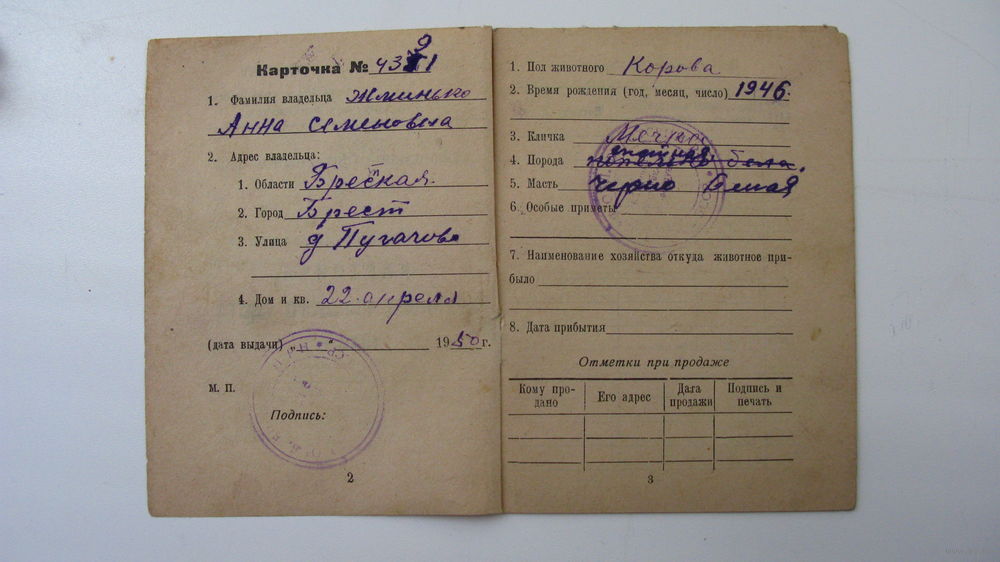 Карточка № 4391
1. Фамилия владельца Жминько
Анна Семеновна
2. Адрес владельца:
1. Области Брестская
2. Город Брест
3. Улица д Пугачово
4. Дом и кв. 22 апреля
(дата выдачи) 1950 г.
М. П.
Подпись:
2
1. Пол животного Корова
2. Время рождения (год, месяц, число) 1946.
3. Кличка
4. Порода
5. Масть черно белая
6. Особые приметы
7. Наименование хозяйства откуда животное при-
было
8. Дата прибытия
Отметки при продаже
Кому про-
дано
Его адрес
Дата
продажи
Подпись и
печать
3